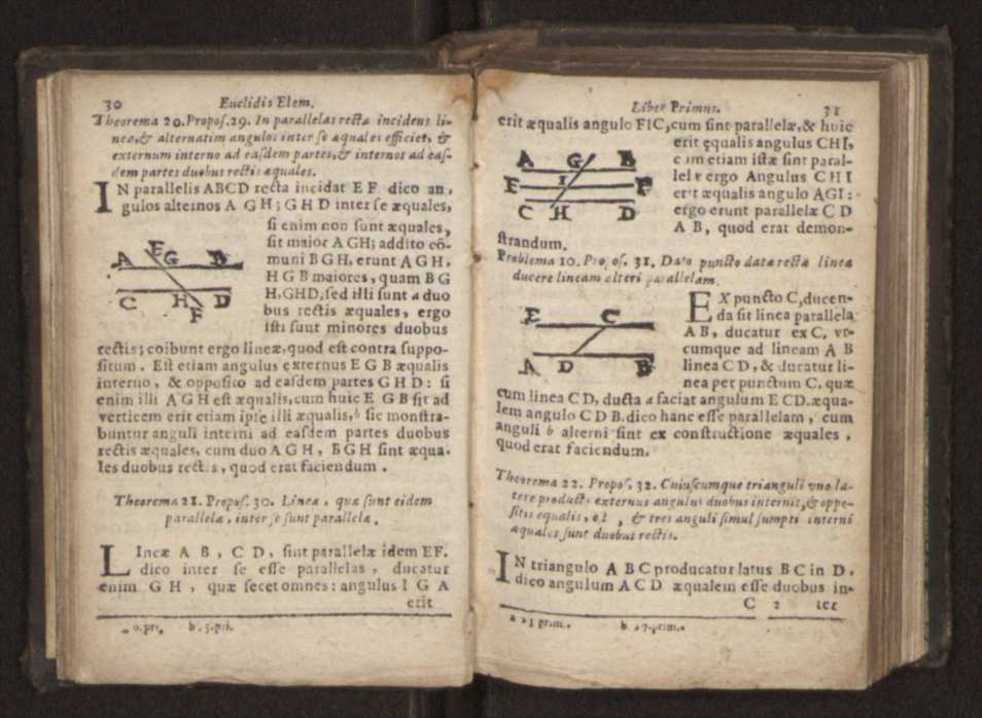 30 Euclidis Elem.
Theorema 20. Propos. 29. In parallelas recta incidens li-
nea, & alternatim angulos inter se æquales efficiet, &
externum interno ad easdem partes, & internos ad eas-
dem partes duobus rectis æquales.
IN parallelis ABCD recta incidat E F dico an,
gulos alternos A G H; G H D inter se æquales,
si enim non sunt æquales,
sit maior A GH; addito cõ-
muni B G H, erunt A G H,
H G B maiores, quam B G
H, GHD, sed illi sunt a duo
bus rectis æquales, ergo
isti sunt minores duobus
A E G B
C H D
F
rectis; coibunt ergo lineæ, quod est contra suppo-
situm. Est etiam angulus externus E G B æqualis
interno, & opposito ad easdem partes G H D: si
enim illi A G H est æqualis, cum huic E G B sit ad
verticem erit etiam ipse illi æqualis, b sic monstra-
buntur anguli interni ad easdem partes duobus
rectis æquales, cum duo A G H, B G H sint æqua-
les duobus rectis, quod erat faciendum.
Theorema 21. Propos. 30. Lineæ, quæ sunt eidem
parallelæ, inter se sunt parallelæ.
LIneæ A B, C D, sint parallelæ idem EF.
dico inter se esse parallelas, ducatur
enim G H, quæ secet omnes: angulus I G A
erit
b. 5. pri.
Liber Primus. 31
erit æqualis angulo FIC, cum sint parallelæ, & huic
erit ęqualis angulus CHI,
cum etiam istæ sint paral-
lelę ergo Angulus CHI
erit æqualis angulo AGI:
ergo erunt parallelæ C D
A B, quod erat demon-
strandum.
A G B
E I F
C H D
Problema 10. Propos. 31. Dato puncto data recta linea
ducere lineam alteri parallelam.
EX puncto C, ducen-
da sit linea parallela
A B, ducatur ex C, vt-
cumque ad lineam A B
linea C D, & ducatur li-
nea per punctum C, quæ
E C
A D B
cum linea C D, ducta a faciat angulum E CD. æqua-
lem angulo C D B. dico hanc esse parallelam, cum
anguli b alterni sint ex constructione æquales,
quod erat faciendum.
Theorema 22. Propos. 32. Cuiuscumque trianguli vno la-
tere producto externus angulus duobus internis, & oppo-
sitis equalis, & tres anguli simul sumpti interni
æquales sunt duobus rectis.
IN triangulo A B C producatur latus B C in D,
dico angulum A C D æqualem esse duobus in-
C 2 ter
a 23 prim. b. 27. prim.